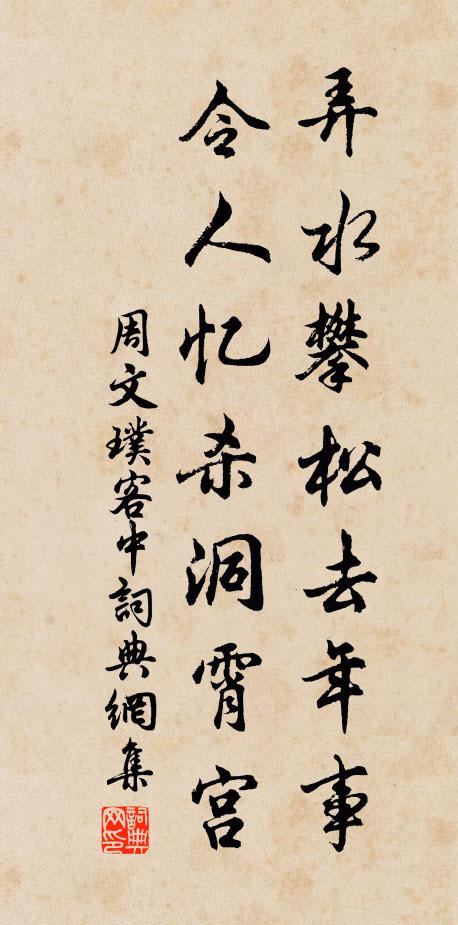 弄水攀松去年事
令人忆杀洞霄宫
周文璞客中詞典網集
詞典网印